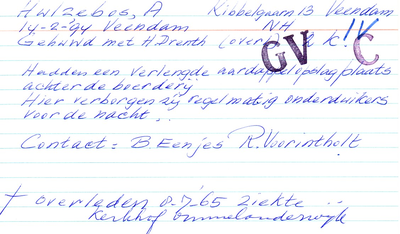 Hulzebos, A Kibbelgaarn 13 Veendam
14-2-94 Veendam NH
Gehuwd met H. Drenth (over) 2 k! IV
GV C
Hadden een verlengde aardappelopslagplaats
achter de boerderij
Hier verborgen zij regelmatig onderduikers
voor de nacht...
Contact: B. Eenjes R. Voorintholt
† overleden 8-7-65 ziekte ..
Kerkhof Ommelanderwijk